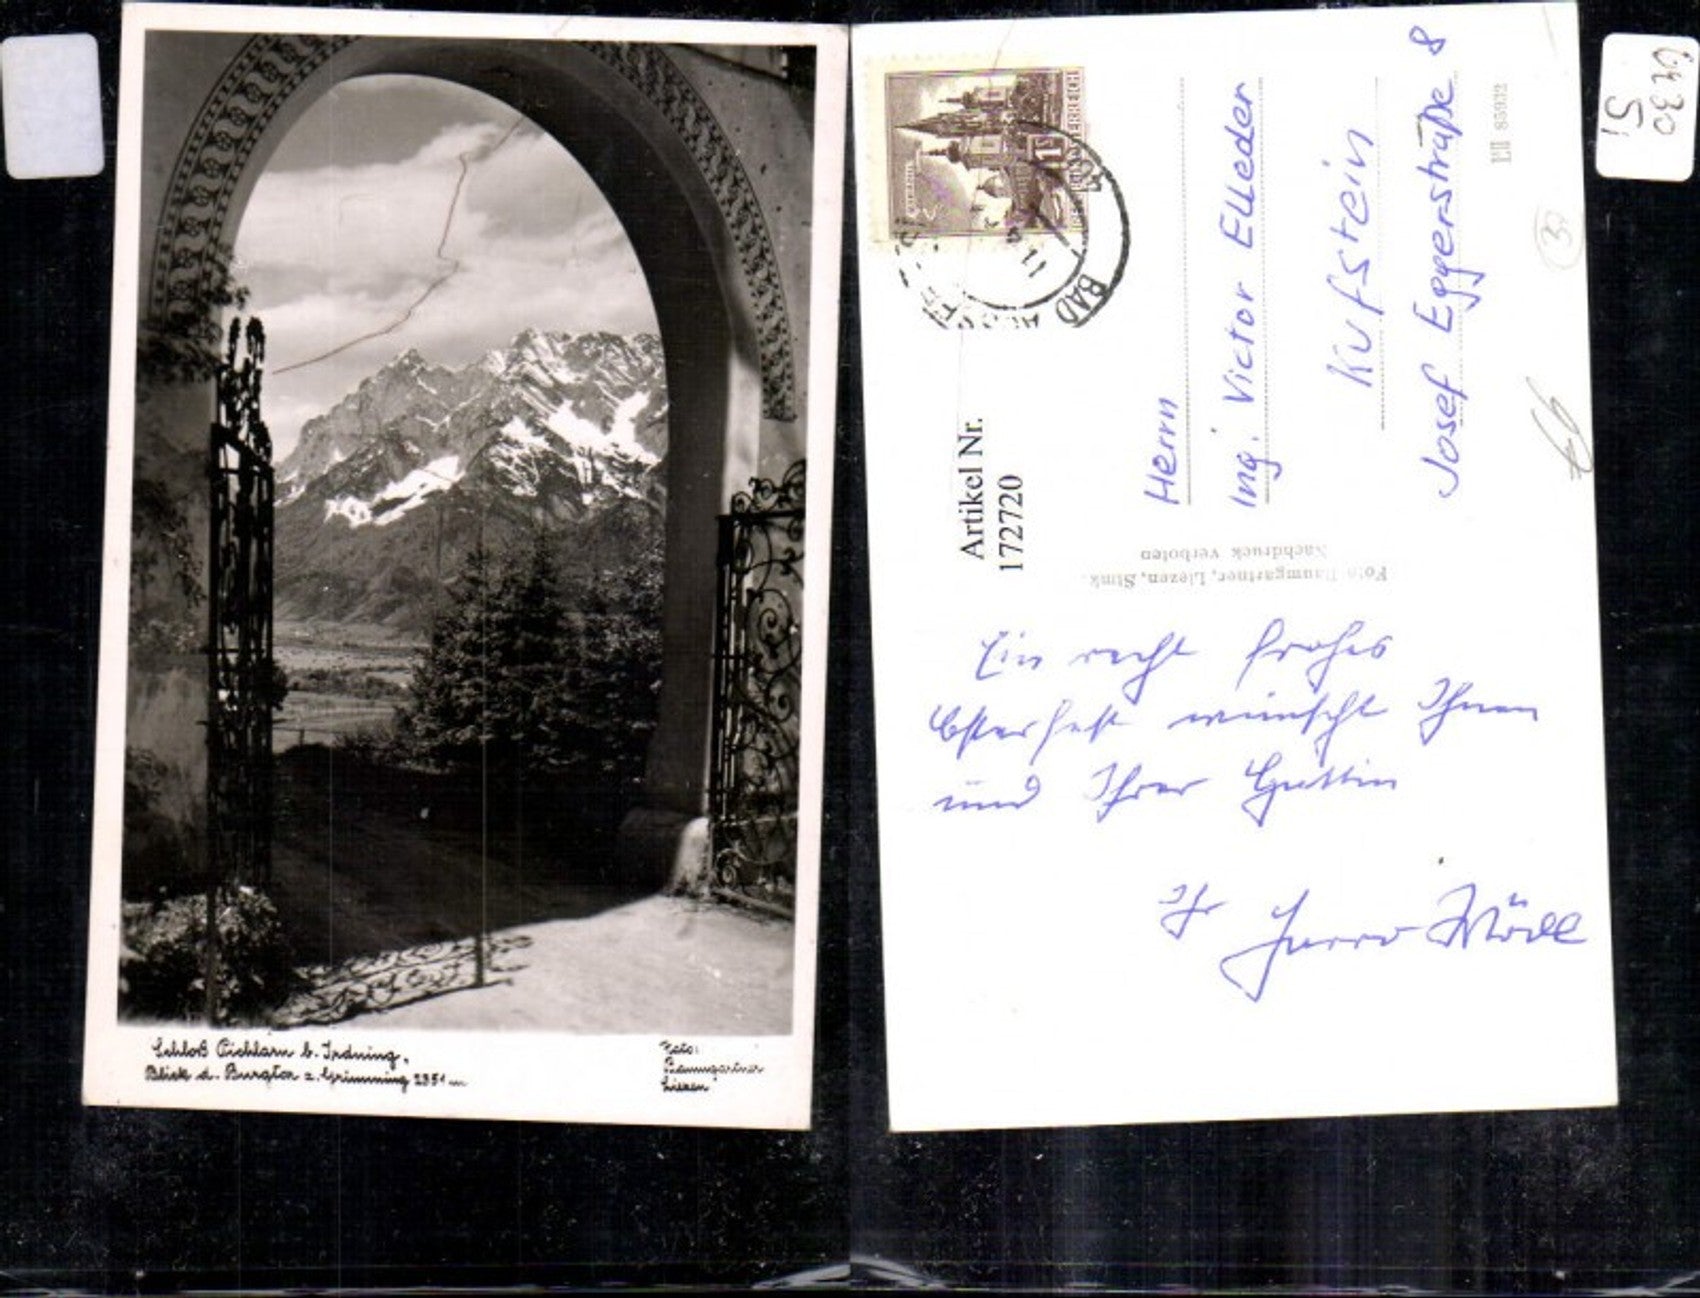 Schloß Pichlarn b. Irdning,
Blick d. Burgtor z. Grimming 2351 m
Foto:
Baumgartner
Liezen
BAD AUSSEE
Artikel Nr.
172720
Herrn
Ing. Victor Elleder
Kufstein
Josef Eggerstraße 8
EII 85932
Foto Baumgartner, Liezen, Stmk.
Nachdruck verboten
Ein recht frohes
Osterfest wünscht Ihnen
und Ihrer Gattin
Ihr
30